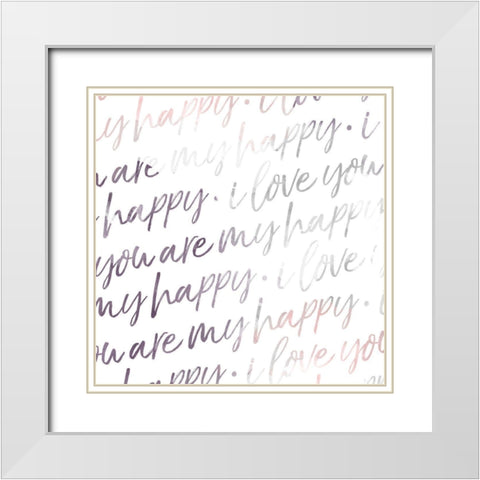 my happy · i love
u are my happy · i
happy · i love you
you are my happy
my happy · i love
ou are my happy · i
happy · i love you